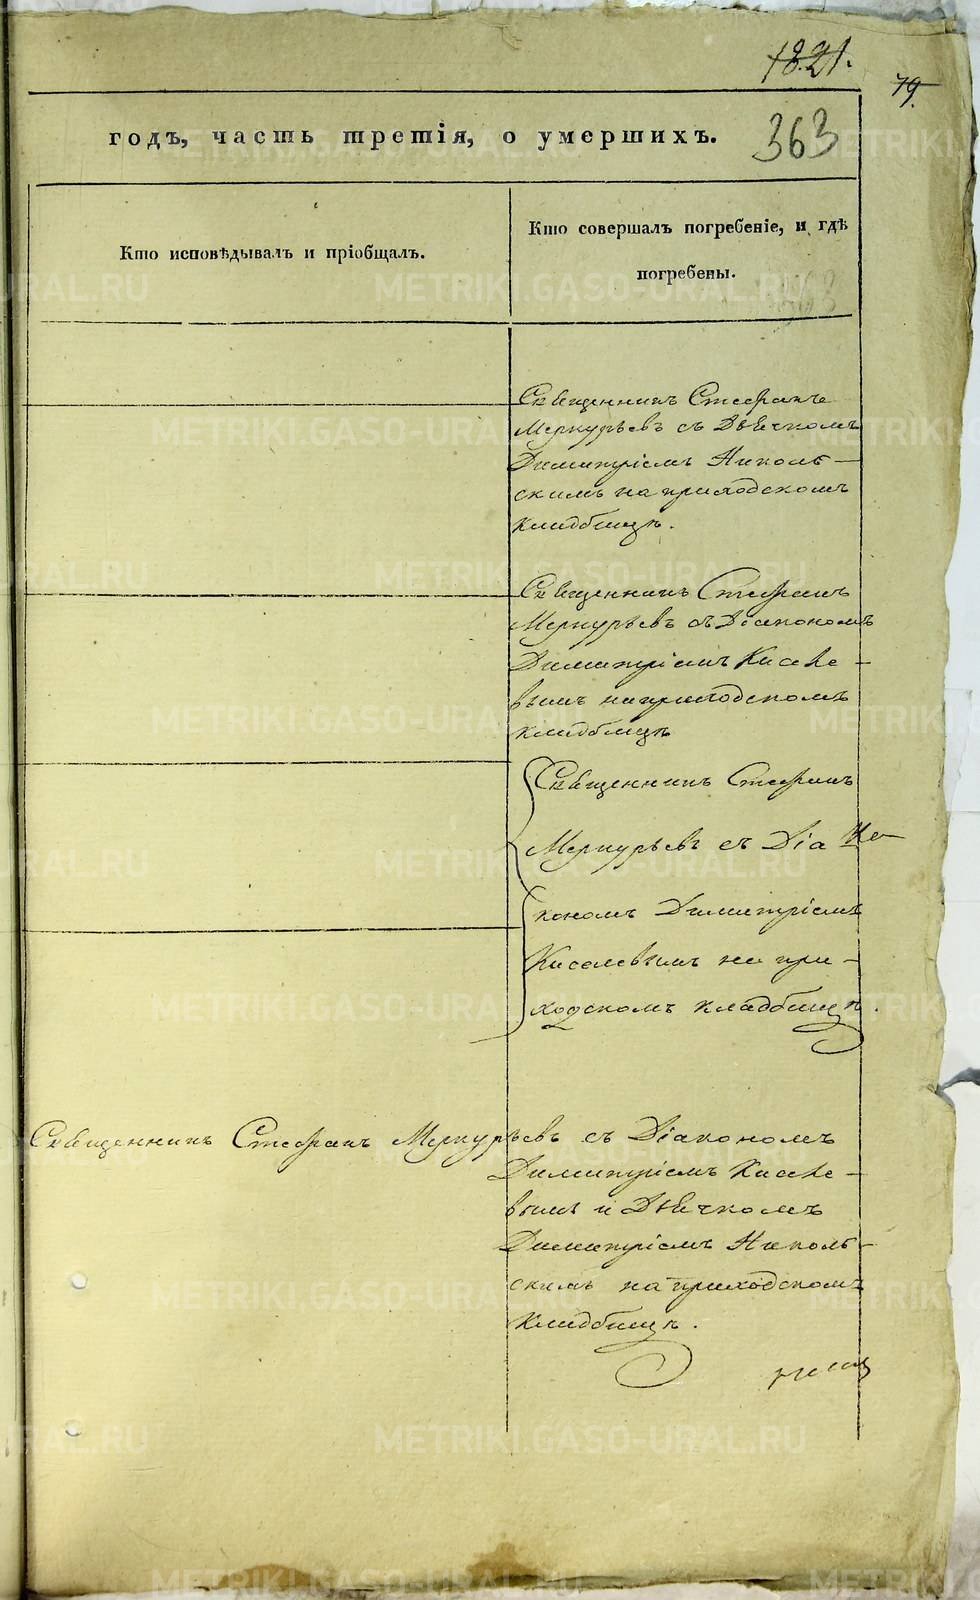 1821.
79.
годъ, часть третія, о умершихъ.
363
Кто исповѣдывалъ и пріобщалъ.
Кто совершалъ погребеніе, и гдѣ
погребены.
Священникъ Стефанъ
Меркурьевъ съ Дьячкомъ
Димитріемъ Николь-
скимъ на приходскомъ
кладбищѣ.
Священникъ Стефанъ
Меркурьевъ съ Діакономъ
Димитріемъ Киселе-
вымъ на приходскомъ
кладбищѣ
Священникъ Стефанъ
Меркурьевъ съ Діа
кономъ Димитріемъ
Киселевымъ на при-
ходскомъ кладбищѣ.
Священникъ Стефанъ Меркурьевъ съ Діакономъ
Димитріемъ Киселе-
вымъ и Дьячкомъ
Димитріемъ Николь-
скимъ на приходскомъ
кладбищѣ.
METRIKI.GASO-URAL.RU